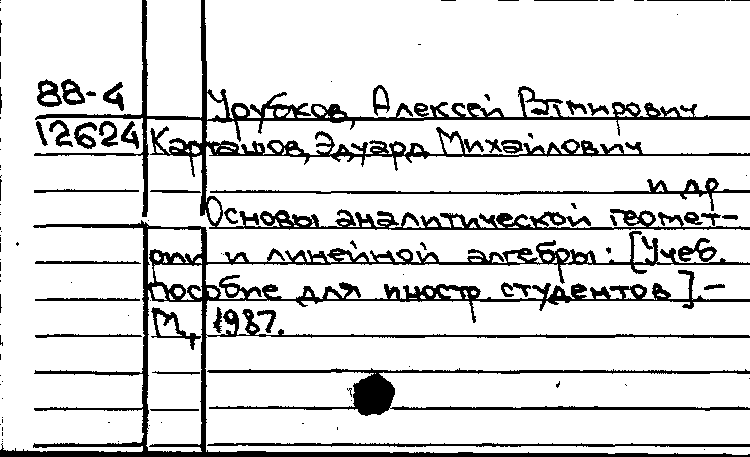 88-4
12624
Урубков, Алексей Ратмирович
Карташов, Эдуард Михайлович
и др
Основы аналитической геомет-
рии и линейной алгебры: [Учеб.
пособие для иностр. студентов].-
М., 1987.